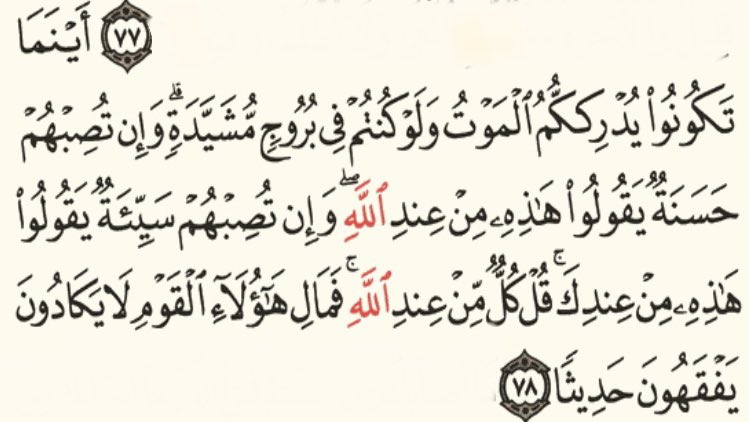 ٧٧ أَيْنَمَا
تَكُونُوا۟ يُدْرِككُّمُ ٱلْمَوْتُ وَلَوْ كُنتُمْ فِى بُرُوجٍ مُّشَيَّدَةٍ ۗ وَإِن تُصِبْهُمْ
حَسَنَةٌ يَقُولُوا۟ هَـٰذِهِۦ مِنْ عِندِ ٱللَّهِ ۖ وَإِن تُصِبْهُمْ سَيِّئَةٌ يَقُولُوا۟
هَـٰذِهِۦ مِنْ عِندِكَ ۚ قُلْ كُلٌّ مِّنْ عِندِ ٱللَّهِ ۚ فَمَالِ هَـٰٓؤُلَآءِ ٱلْقَوْمِ لَا يَكَادُونَ
يَفْقَهُونَ حَدِيثًا ٧٨